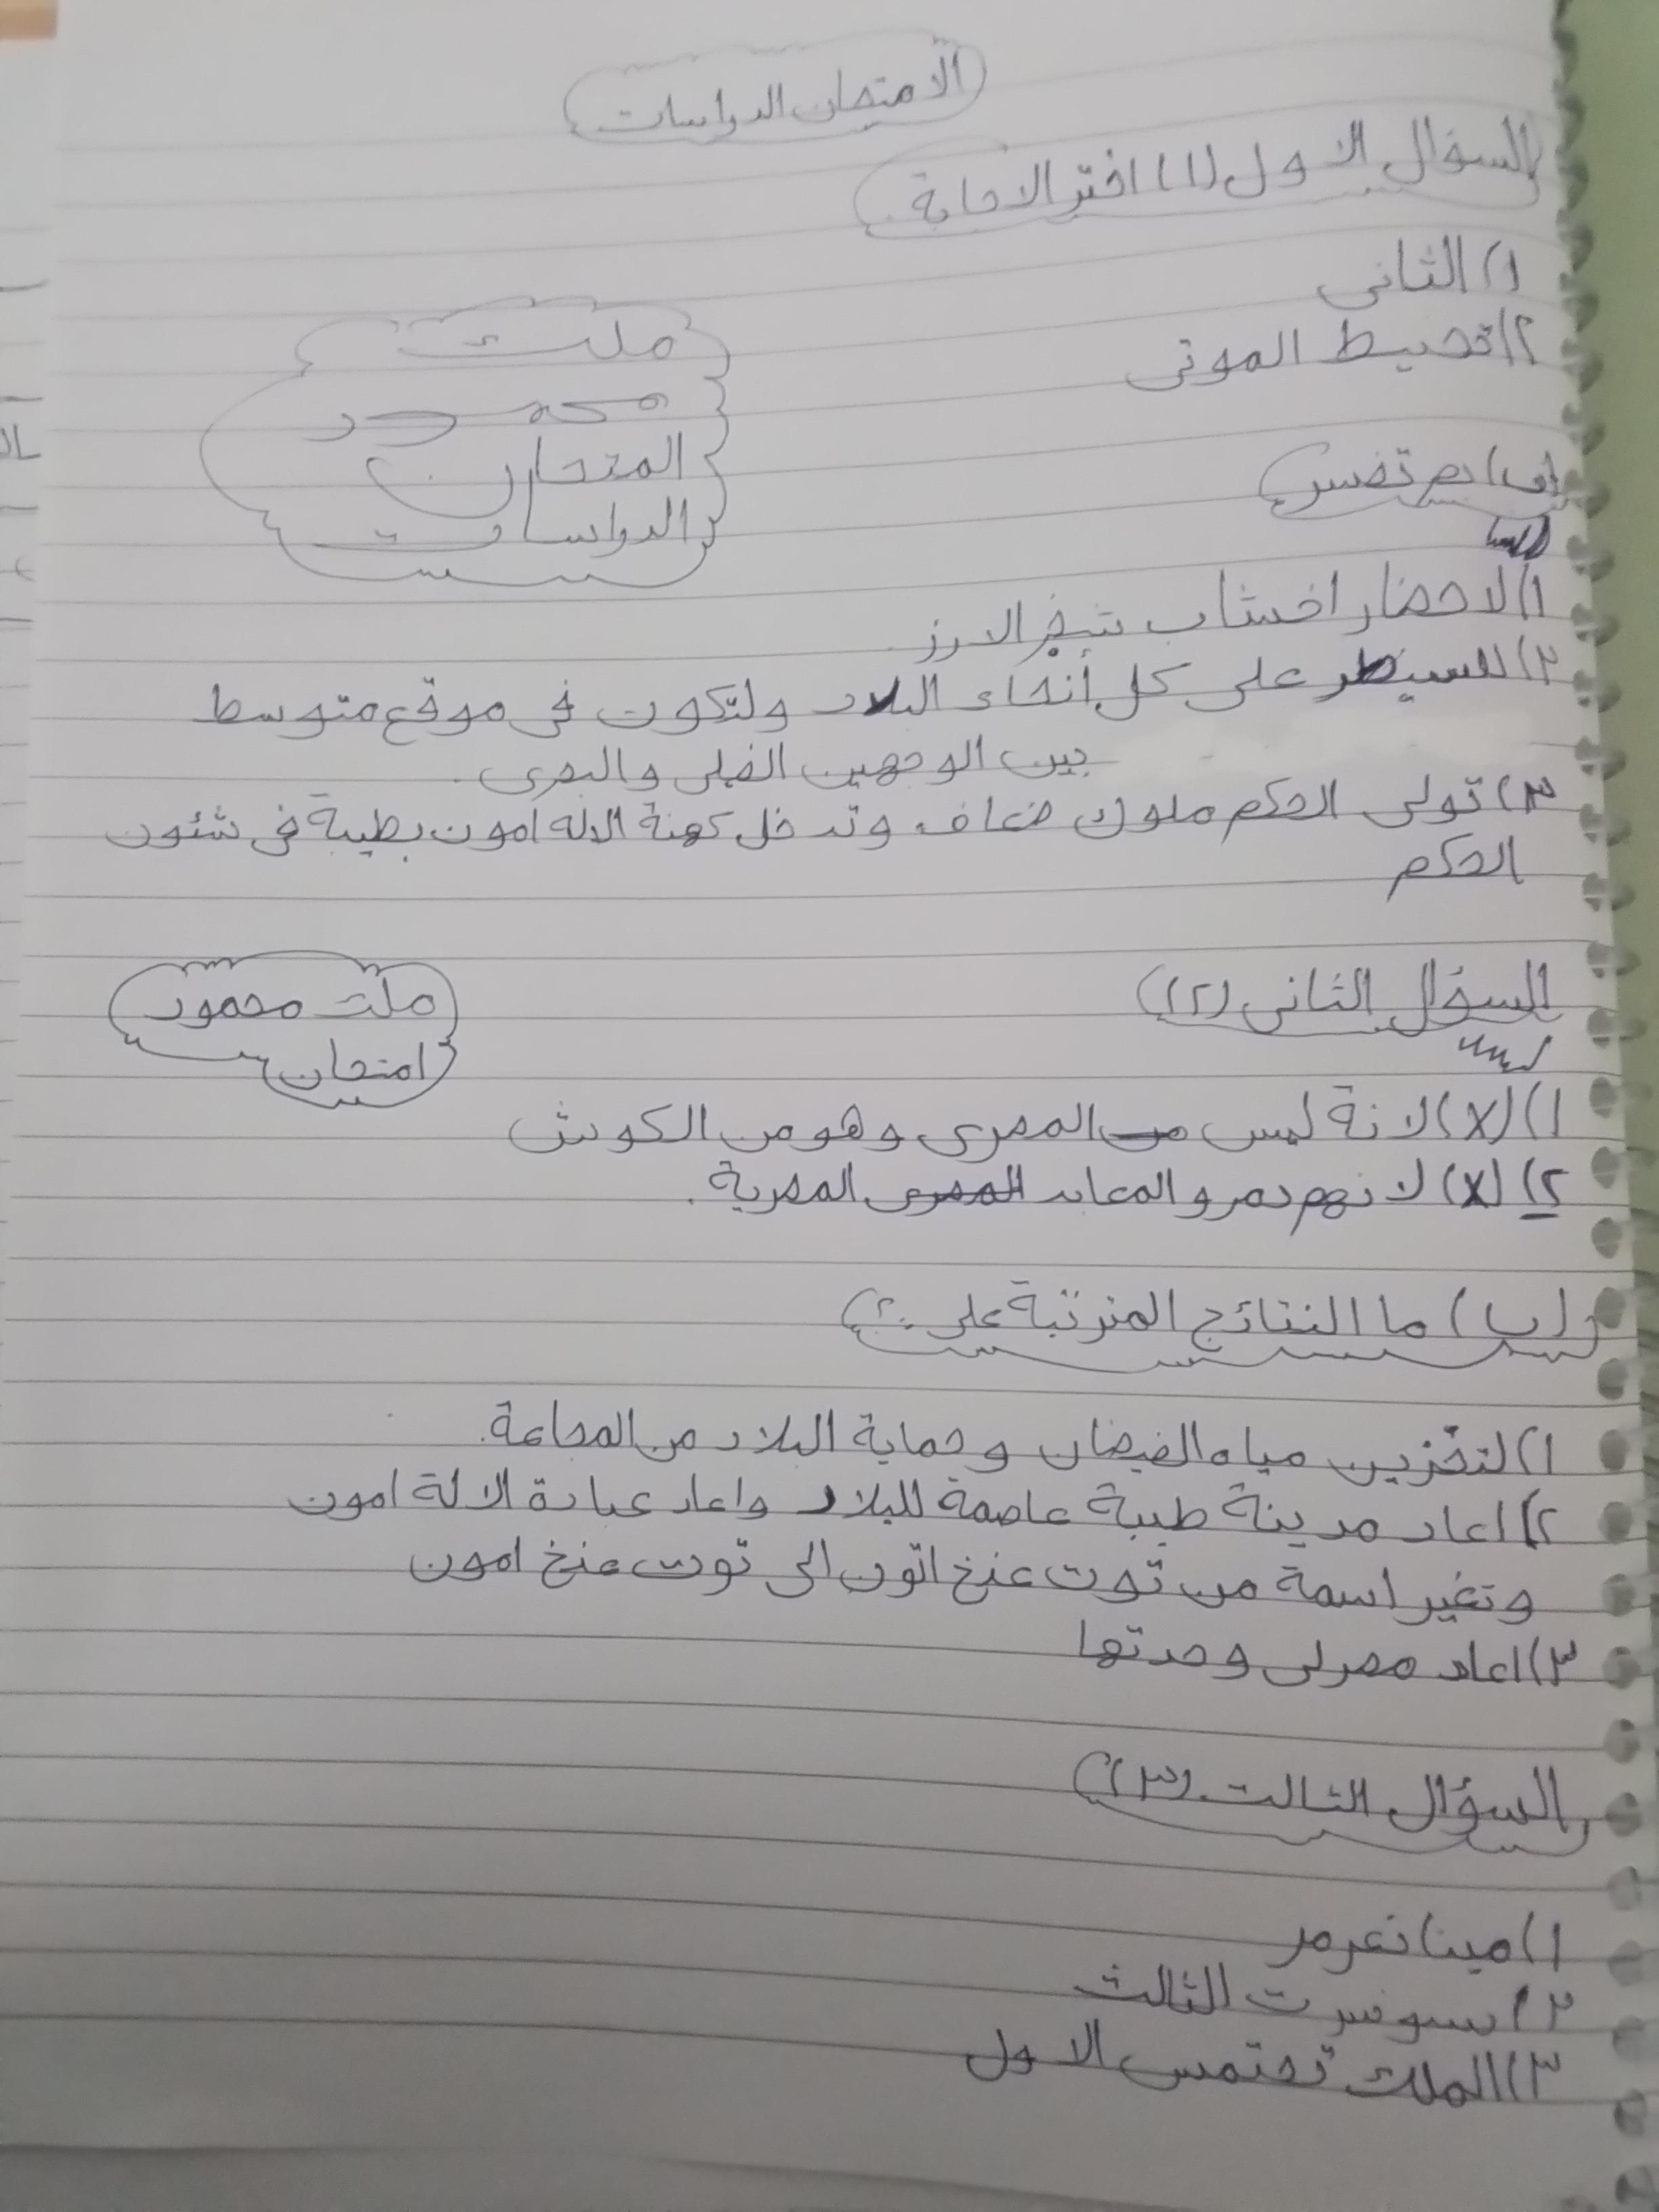 الامتحان الدراسات
السؤال الاول (١) اختر الاجابة.
١) الثانى
٢) تحيط الموتى
ملك
محمود
المتحان
الدراسات
(ب) بم تفسر
١) لاحضار اخشاب شجر الارز
٢) للسيطر على كل أنحاء البلاد ولتكون فى موقع متوسط
بين الوجهين القبلى والبحرى.
٣) تولى الحكم ملوك ضعاف وتدخل كهنة الاله امون بطيبة فى شئون
الحكم
السؤال الثانى (٢)
ملك محمود
امتحان
١) (X) لانة ليس المصرى وهو من الكوش
٢) (X) لانهم دمرو المعابد المصرية.
(ب) ما النتائج المترتبة على
١) لتخزين مياه الفيضان وحماية البلاد من المجاعة.
٢) اعاد مدينة طيبة عاصمة للبلاد واعاد عبادة الالة امون
وتغير اسمة من توت عنخ اتون الى توت عنخ امون
٣) اعاد مصرلى وحدتها
السؤال الثالث (٣)
١) مينا نعرمر
٢) سونسرت الثالث
٣) الملك تحتمس الاول